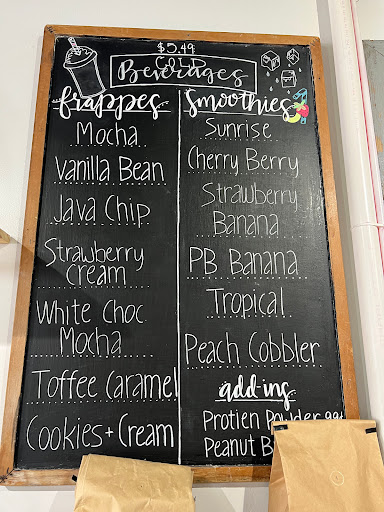 $5.49
COLD
Beverages
frappes
Mocha
Vanilla Bean
Java Chip
Strawberry
Cream
White Choc
Mocha
Toffee Caramel
Cookies + Cream
Smoothies
Sunrise
Cherry Berry
Strawberry
Banana
PB Banana
Tropical
Peach Cobbler
add-ins
Protien Powder
Peanut